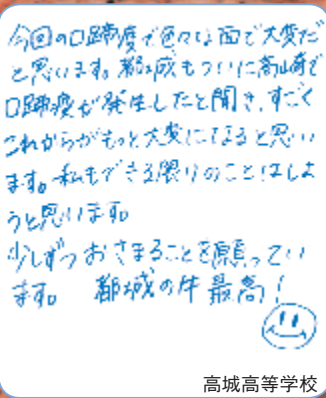 今回の口蹄疫で色々な面で大変だ
と思います。都城もついに高崎で
口蹄疫が発生したと聞き、すごく
これからがもっと大変になると思い
ます。私もできる限りのことはしよ
うと思います。
少しずつおさまることを願ってい
ます。 都城の牛最高!
高城高等学校